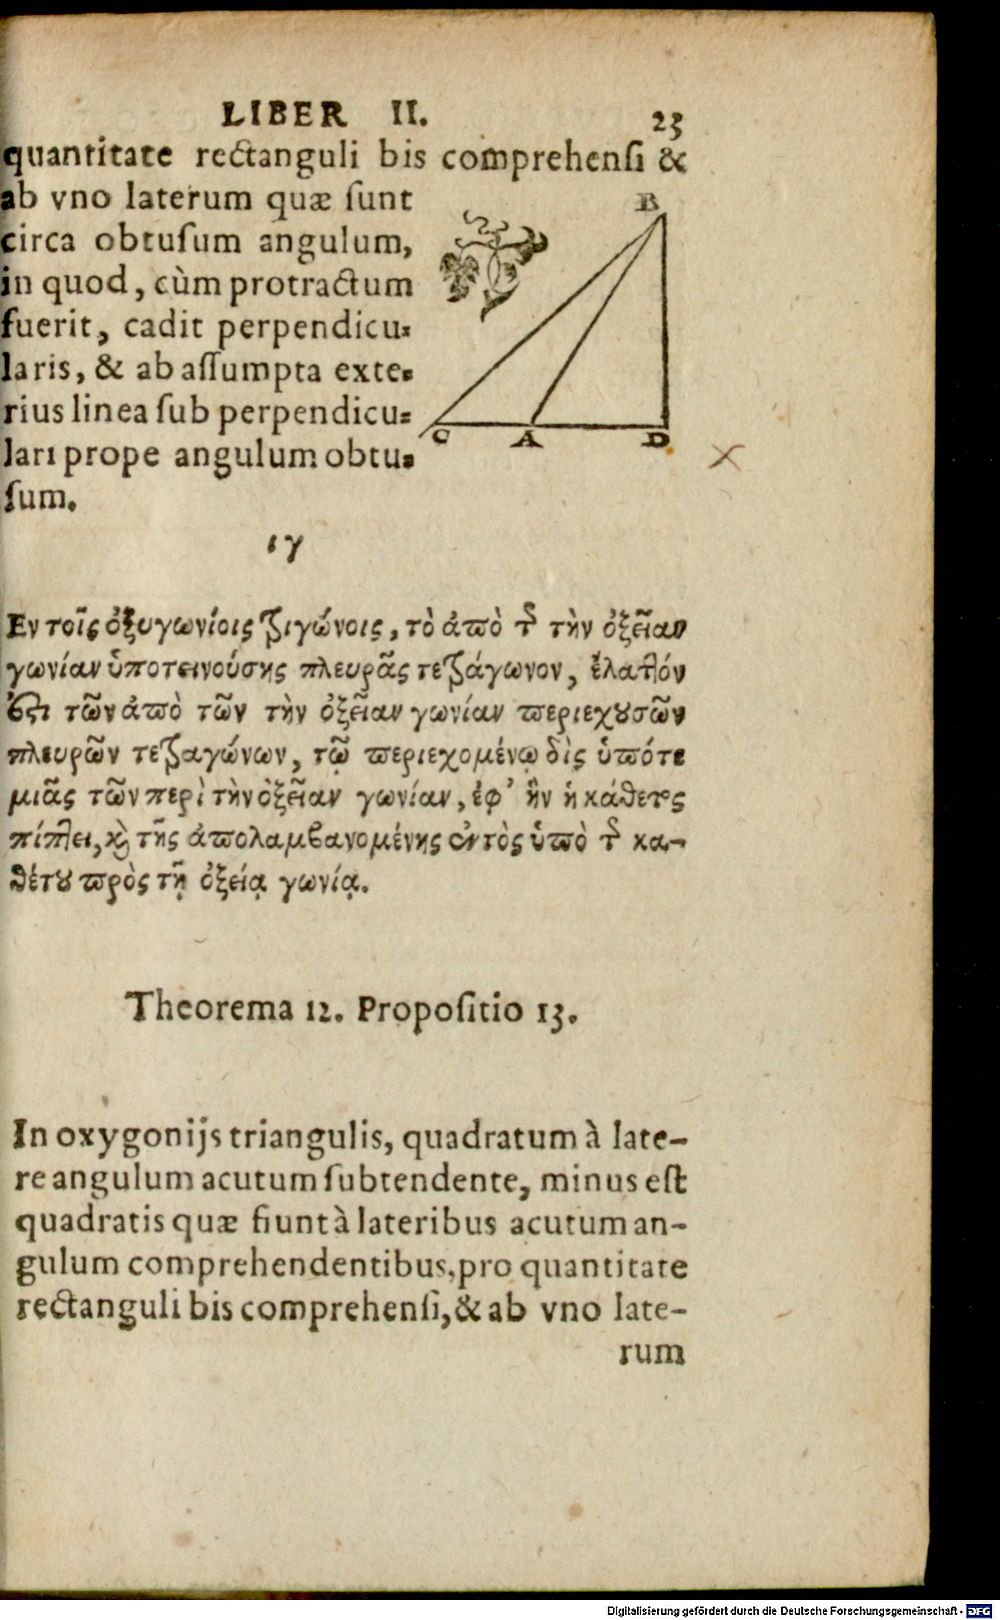 LIBER II. 23
quantitate rectanguli bis comprehenſi &
ab vno laterum quæ ſunt
circa obtuſum angulum,
in quod, cùm protractum
fuerit, cadit perpendicu-
laris, & ab aſſumpta exte-
rius linea ſub perpendicu-
lari prope angulum obtu-
ſum.
B
C A D
ιγ
Εν τοῖς ὀξυγωνίοις τριγώνοις, τὸ ἀπὸ τῆς τὴν ὀξεῖαν
γωνίαν ὑποτεινούσης πλευρᾶς τετράγωνον, ἔλαττόν
ἐστι τῶν ἀπὸ τῶν τὴν ὀξεῖαν γωνίαν περιεχουσῶν
πλευρῶν τετραγώνων, τῷ περιεχομένῳ δὶς ὑπό τε
μιᾶς τῶν περὶ τὴν ὀξεῖαν γωνίαν, ἐφ’ ἣν ἡ κάθετος
πίπτει, καὶ τῆς ἀπολαμβανομένης ἐντὸς ὑπὸ τῆς κα-
θέτου πρὸς τῇ ὀξείᾳ γωνίᾳ.
Theorema 12. Propoſitio 13.
In oxygonijs triangulis, quadratum à late-
re angulum acutum ſubtendente, minus eſt
quadratis quæ fiunt à lateribus acutum an-
gulum comprehendentibus, pro quantitate
rectanguli bis comprehenſi, & ab vno late-
rum
Digitalisierung gefördert durch die Deutsche Forschungsgemeinschaft - DFG